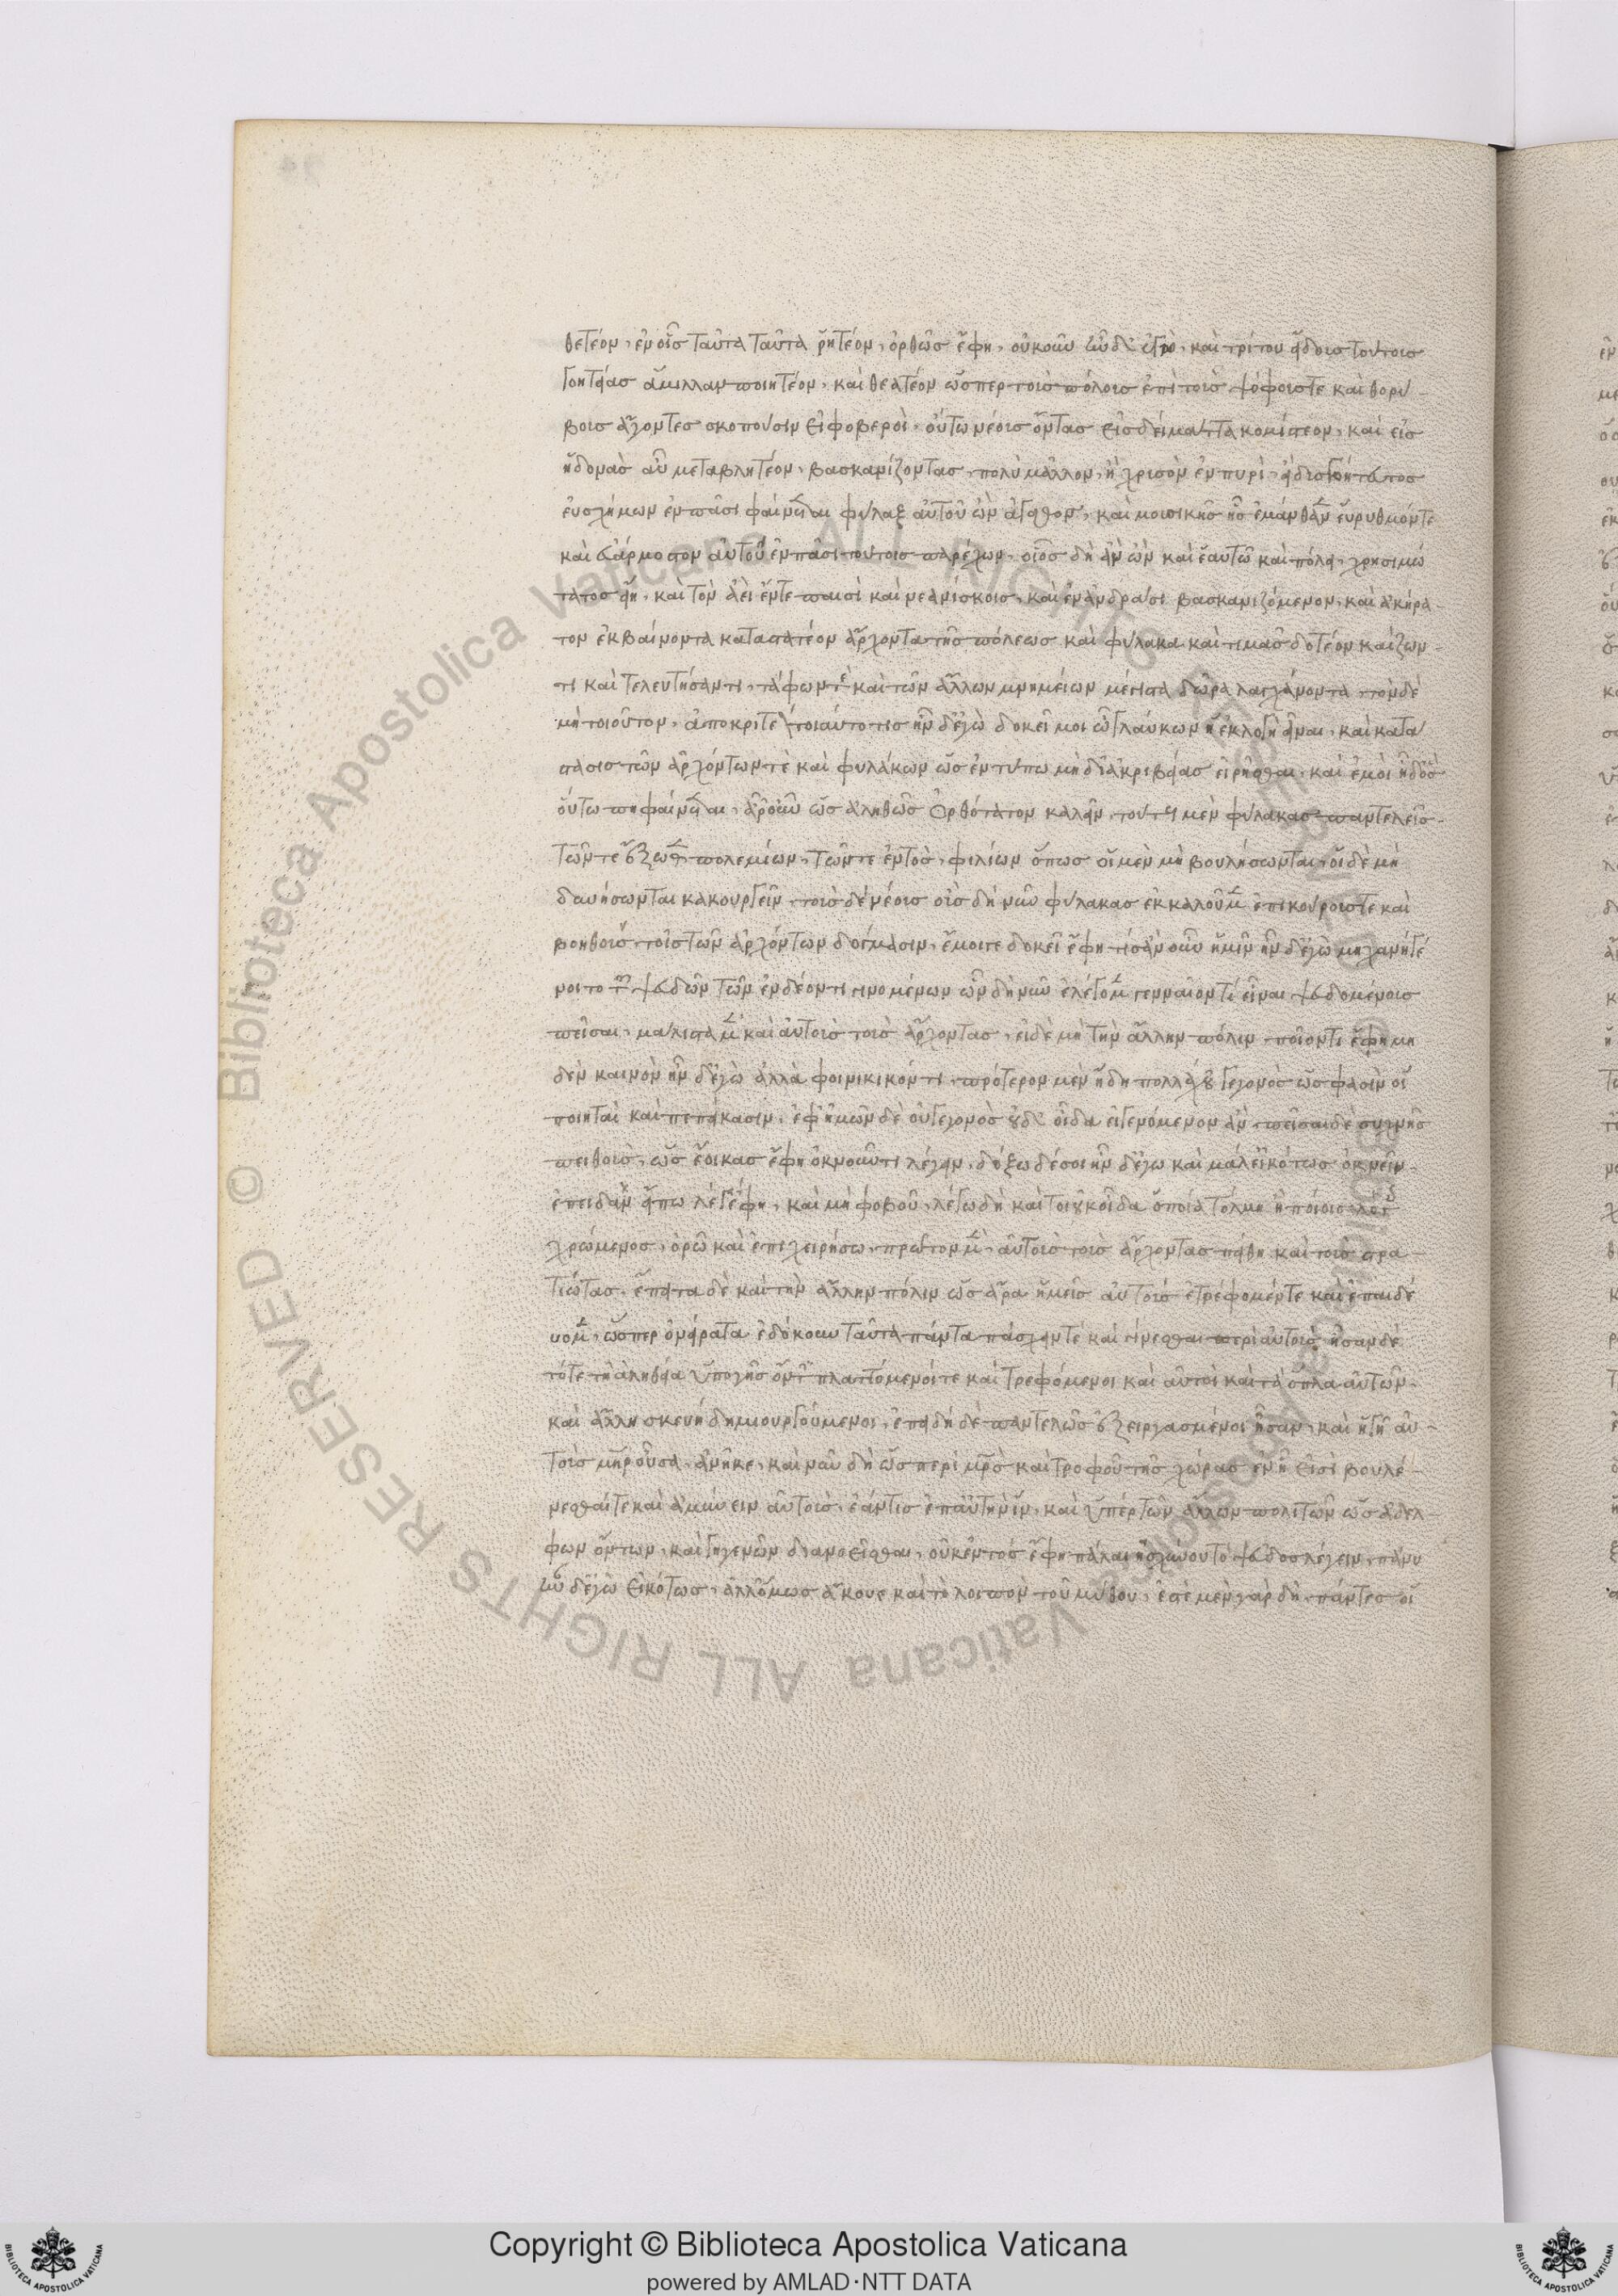 θετέον, ἐν οἷς ταῦτα ταῦτα ῥητέον, ὀρθῶς ἔφη, οὐκοῦν ἦν δ' ἐγὼ, καὶ τρίτον εἴδους τούτοις
γοητείας ἅμιλλαν ποιητέον, καὶ θεατέον ὥσπερ τοὺς πώλους ἐπὶ τοὺς ψόφους τε καὶ θορύ-
βους ἄγοντες σκοποῦσιν εἰ φοβεροὶ, οὕτω νέους ὄντας εἰς δείματ' ἄττα κομιστέον, καὶ εἰς
ἡδονὰς αὖ μεταβλητέον, βασανίζοντας, πολὺ μᾶλλον, ἢ χρυσὸν ἐν πυρὶ, εἰ δυσγοήτευτος
εὐσχήμων ἐν πᾶσι φαίνεται φύλαξ αὑτοῦ ὢν ἀγαθὸς, καὶ μουσικῆς ἧς ἐμάνθανεν εὔρυθμόν τε
καὶ εὐάρμοστον αὑτοῦ ἐν πᾶσι τούτοις παρέχων, οἷος δὴ ἂν ὢν καὶ ἑαυτῶ καὶ πόλει, χρησιμώ
τατος εἴη, καὶ τὸν ἀεὶ ἔν τε παισὶ καὶ νεανίσκοις, καὶ ἐν ἀνδράσι βασανιζόμενον, καὶ ἀκήρα-
τον ἐκβαίνοντα καταστατέον ἄρχοντα τῆς πόλεως καὶ φύλακα καὶ τιμὰς δοτέον καὶ ζων-
τι καὶ τελευτήσαντι, τάφων τὲ καὶ τῶν ἄλλων μνημείων μέγιστα δῶρα λαγχάνοντα, τὸν δὲ
μὴ τοιοῦτον, ἀποκριτέ τοιαύτο τις ἦν δ' ἐγὼ δοκεῖ μοι ὦ γλαύκων ἡ ἐκλογὴ εἶναι, καὶ κατά
στασις τῶν ἀρχόντων τὲ καὶ φυλάκων ὡς ἐν τύπω μὴ δι' ἀκριβείας εἰρῆσθαι, καὶ ἐμοὶ ἦ δ' ὃς
οὕτω πη φαίνεται, ἆρ' οὖν ὡς ἀληθῶς ὀρθότατον καλεῖν, τούτους μὲν φύλακας παντελεῖς-
τῶν τε ἔξωθεν πολεμίων, τῶν τε ἐντὸς, φιλίων ὅπως οἱ μὲν μὴ βουλήσωνται, οἱ δὲ μὴ
δυνήσωνται κακουργεῖν, τοὺς δὲ νέους οὓς δὴ νῦν φύλακας ἐκκαλοῦμεν ἐπικούρους τε καὶ
βοηθοὺς, τοῖς τῶν ἀρχόντων δόγμασιν, ἔμοιγε δοκεῖ ἔφη τίς ἂν οὖν ἡμῖν ἦν δ' ἐγὼ μηχανὴ γέ
νοιτο τῶν ψευδῶν τῶν ἐν δέοντι γινομένων ὧν δὴ νῦν ἐλέγομεν γενναῖόν τι εἶναι ψευδομένους
πεῖσαι, μάλιστα μὲν καὶ αὐτοὺς τοὺς ἄρχοντας, εἰ δὲ μὴ τὴν ἄλλην πόλιν, ποῖόν τι ἔφη μη
δὲν καινὸν ἦν δ' ἐγὼ ἀλλὰ φοινικικόν τι, πρότερον μὲν ἤδη πολλαχοῦ γεγονὸς ὥς φασιν οἱ
ποιηταὶ καὶ πεπείκασιν, ἐφ' ἡμῶν δὲ οὐ γεγονὸς οὐδ' οἶδα εἰ γενόμενον ἂν, πεῖσαι δὲ συχνῆς
πειθοῦς, ὡς ἔοικας ἔφη ὀκνοῦντι λέγειν, δόξω δέ σοι ἦν δ' ἐγὼ καὶ μάλ' εἰκότως ὀκνεῖν-
ἐπειδὰν εἴπω λέγ' ἔφη, καὶ μὴ φοβοῦ, λέγω δὴ καὶ τοι οὐκ οἶδα ὁποία τόλμη ἢ ποίοις λόγοις
χρώμενος, ἐρῶ καὶ ἐπιχειρήσω, πρῶτον μὲν, αὐτοὺς τοὺς ἄρχοντας πείθη καὶ τοὺς στρα-
τιώτας, ἔπειτα δὲ καὶ τὴν ἄλλην πόλιν ὡς ἄρα ἡμεῖς αὐτοὺς ἐτρέφομέν τε καὶ ἐπαιδεύ
ομεν, ὥσπερ ὀνείρατα ἐδόκουν ταῦτα πάντα πάσχειν τὲ καὶ γίνεσθαι περὶ αὐτοὺς ἦσαν δὲ
τότε τῆ ἀληθεία ὑπὸ γῆς ὄντες πλαττόμενοί τε καὶ τρεφόμενοι καὶ αὐτοὶ καὶ τὰ ὅπλα αὐτῶν-
καὶ ἄλλη σκευὴ δημιουργούμενοι, ἐπειδὴ δὲ παντελῶς ἐξειργασμένοι ἦσαν, καὶ ἡ γῆ αὐ-
τοὺς μηρ οὖσα, ἀνῆκε, καὶ νῦν δὴ ὡς περὶ μρὸς καὶ τροφοῦ τῆς χώρας ἐν ἧ εἰσὶ βουλέ-
νεσθαί τε καὶ ἀμύνειν αὐτοὺς, ἐάν τις ἐπ' αὐτὴν ἴη, καὶ ὑπὲρ τῶν ἄλλων πολιτῶν ὡς ἀδελ-
φῶν ὄντων, καὶ γηγενῶν διανοεῖσθαι, οὐκ ἐντὸς ἔφη πάλαι ἠσχύνου τὸ ψεῦδος λέγειν, πάνυ
ἦν δ' ἐγὼ εἰκότως, ἀλλ' ὅμως ἄκουε καὶ τὸ λοιπὸν τοῦ μύθου, ἐστὲ μὲν γὰρ δὴ, πάντες οἱ
Copyright © Biblioteca Apostolica Vaticana
powered by AMLAD·NTT DATA